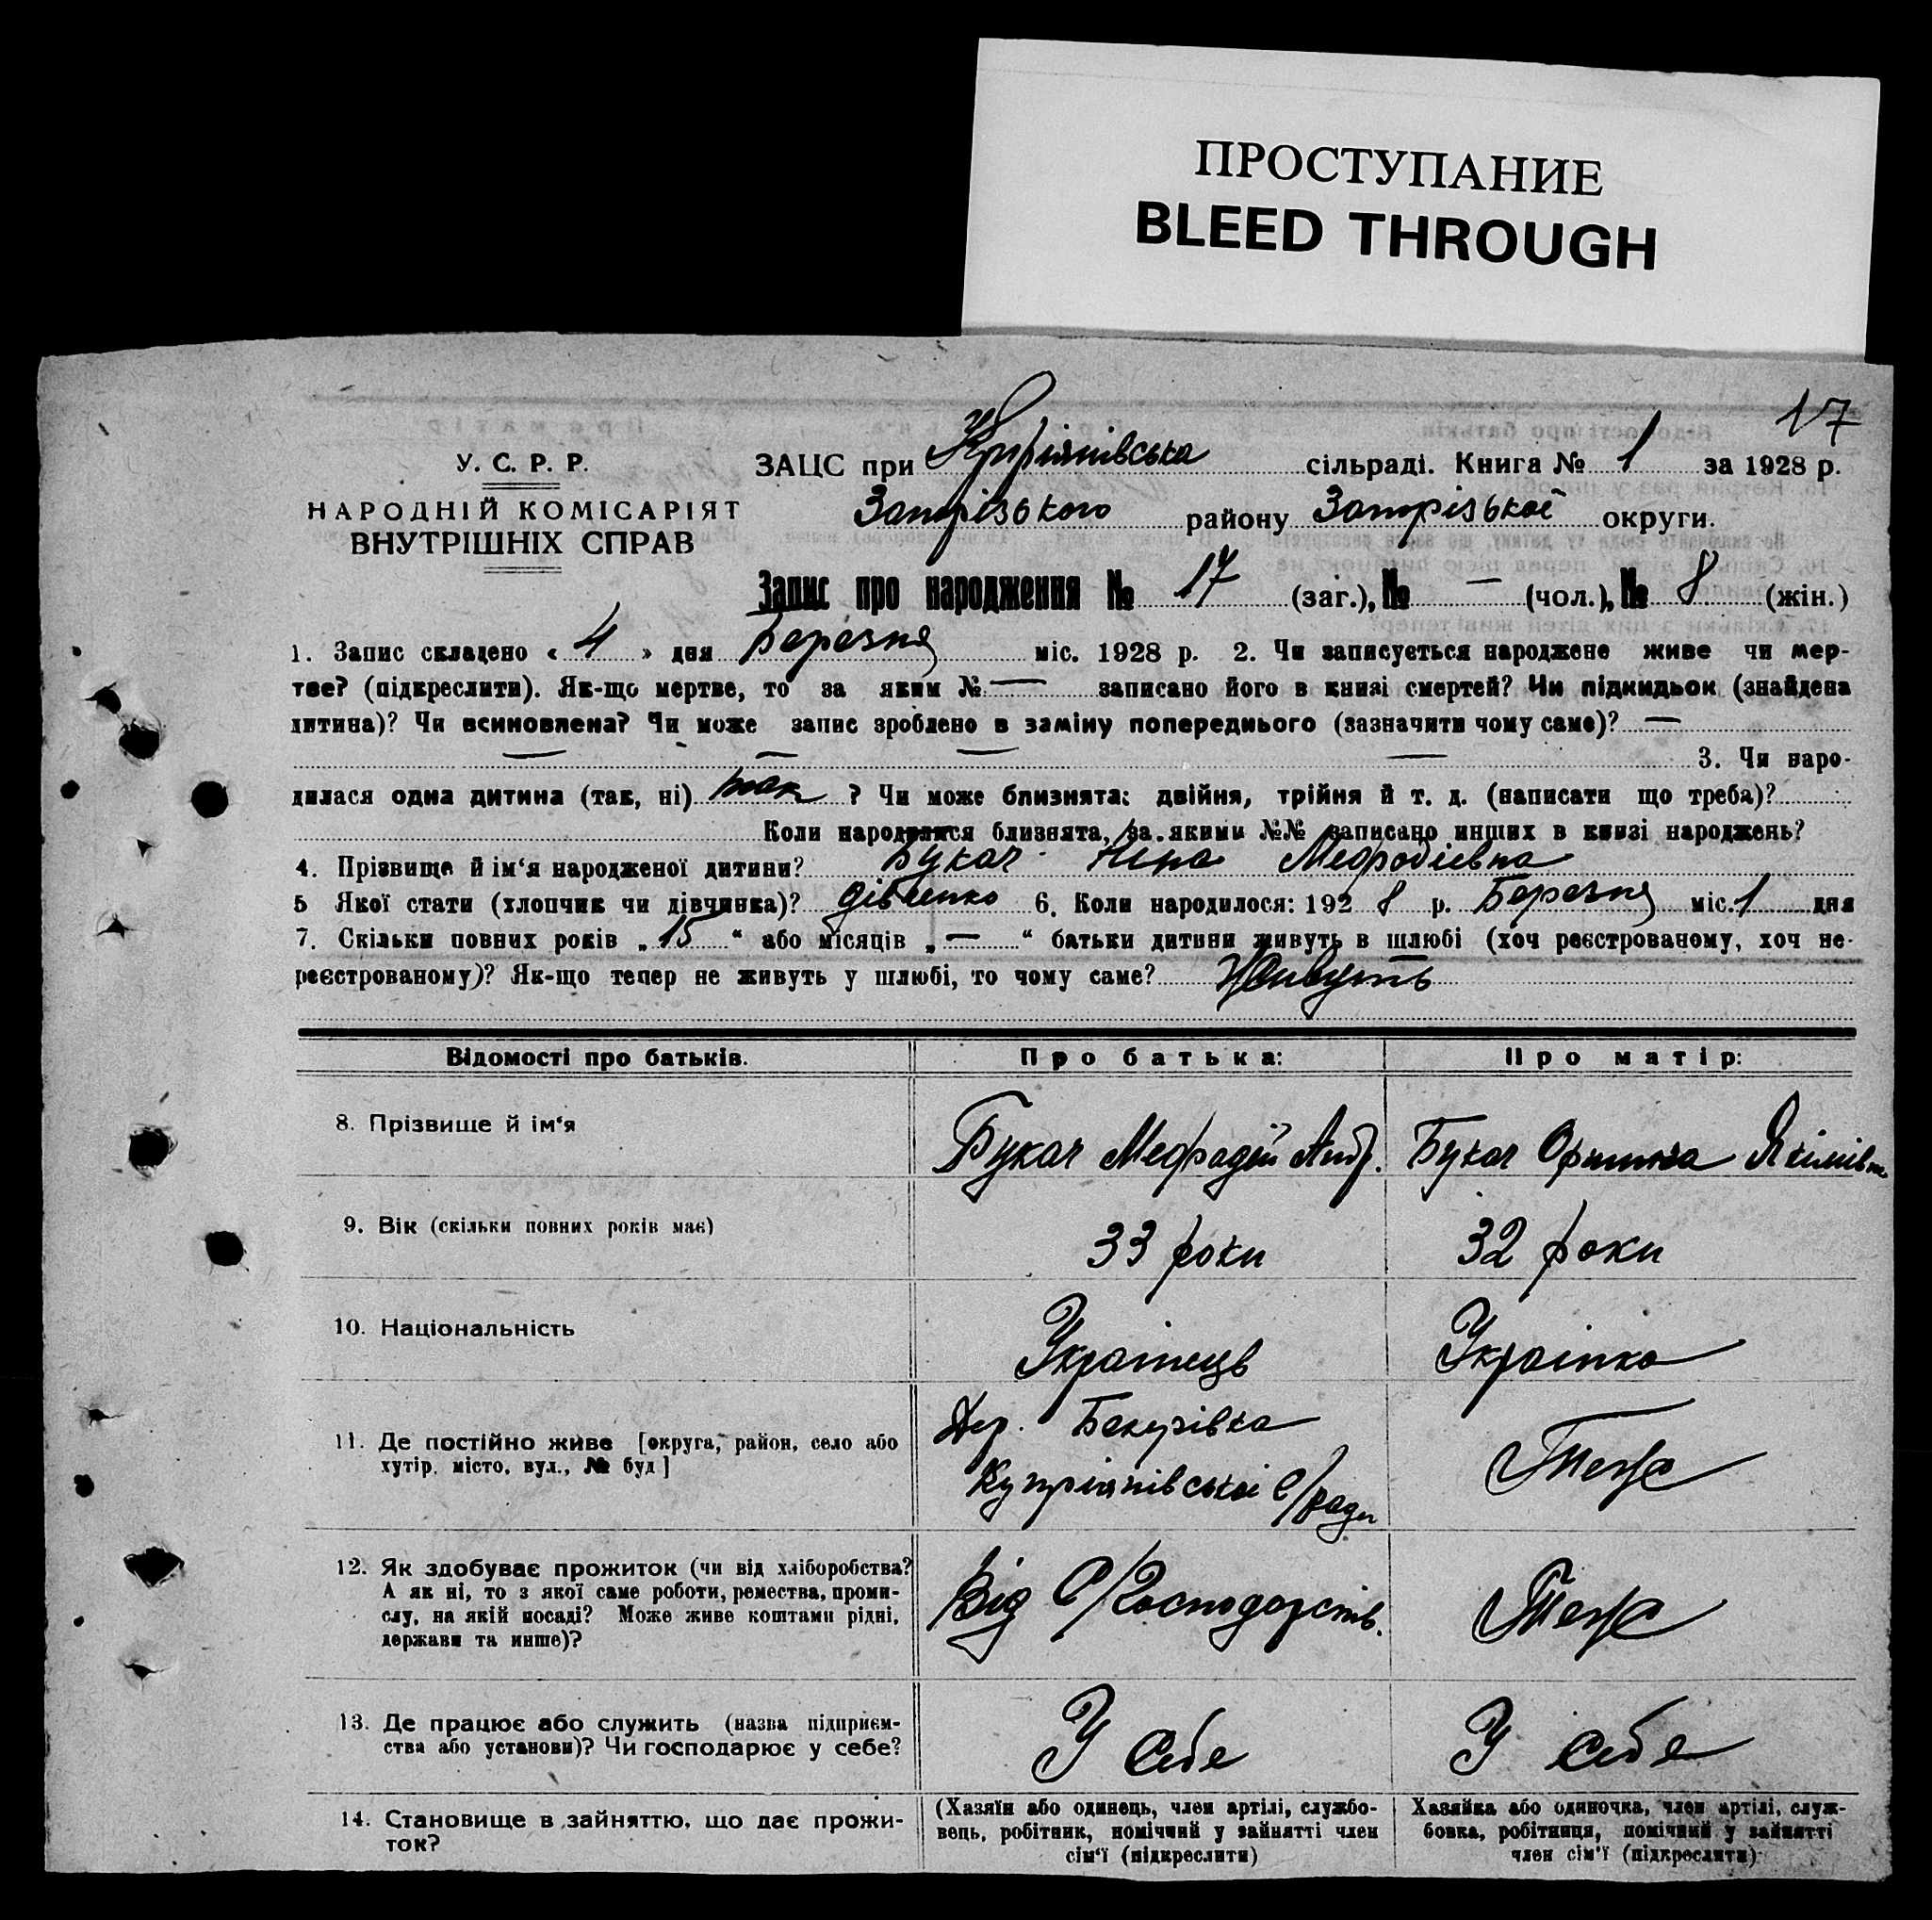 ПРОСТУПАНИЕ
BLEED THROUGH
17
У. С. Р. Р.
НАРОДНІЙ КОМІСАРІЯТ
ВНУТРІШНІХ СПРАВ
ЗАЦС при Купріянівська сільраді. Книга № 1 за 1928 р.
Запорізького району Запорізької округи.
Запис про народження № 17 (заг.), № — (чол.), № 8 (жін.)
1. Запис складено « 4 » дня Березня міс. 1928 р. 2. Чи записується народжене живе чи мер-
тве? (підкреслити). Як-що мертве, то за яким № — записано його в книзі смертей? Чи підкидьок (знайдена
дитина)? Чи всиновлена? Чи може запис зроблено в заміну попереднього (зазначити чому саме)? —
— — — — 3. Чи наро-
дилася одна дитина (так, ні) так ? Чи може близнята: двійня, трійня й т. д. (написати що треба)?
Коли народилися близнята, за якими №№ записано инших в книзі народжень?
4. Прізвище й ім‘я народженої дитини? Букач Ніна Мефодіевна
5 Якої стати (хлопчик чи дівчинка)? 6. Коли народилося: 192 8 р. Березня міс. 1 дня
7. Скільки повних років „ 15 “ або місяців „ — “ батьки дитини живуть в шлюбі (хоч реєстрованому, хоч не-
реєстрованому)? Як-що тепер не живуть у шлюбі, то чому саме? Живуть
Відомості про батьків. Про батька: Про матір:
8. Прізвище й ім‘я Букач Мефодій Андр. Букач Якимівн
9. Вік (скільки повних років має) 33 роки 32 роки
10. Національність Українець Українка
11. Де постійно живе [округа, район, село або
хутір, місто, вул., № буд]
Дер.
Купріянівської С/ради
Теж
12. Як здобуває прожиток (чи від хліборобства?
А як ні, то з якої саме роботи, ремества, проми-
слу, на якій посаді? Може живе коштами рідні,
держави та инше)?
Від С/Господарств.
Теж
13. Де працює або служить (назва підприєм-
ства або установи)? Чи господарює у себе?
У себе
У себе
14. Становище в зайняттю, що дає прожи-
ток?
(Хазяїн або одинець, член артілі, службо-
вець, робітник, помічний у зайнятті член
сім‘ї (підкреслити)
Хазяйка або одиночка, член артілі, служ-
бовка, робітниця, помічний у зайнятті
член сім‘ї (підкреслити)